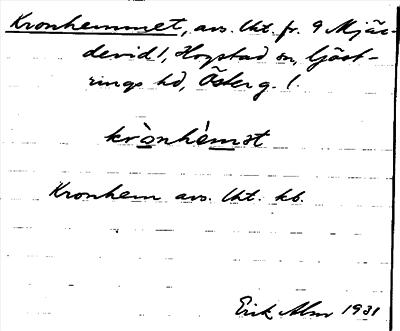 Kronhemmet, avs. lht. fr. 9 Mjär-
devid 1, Hogstad sn, Göst-
rings hd, Österg. l.
krònhèmət
Kronhem avs. lht. kb.
Erik Alm 1931